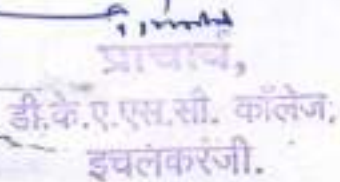 प्राचार्य,
डी.के.ए.एस.सी. कॉलेज,
इचलकरंजी.